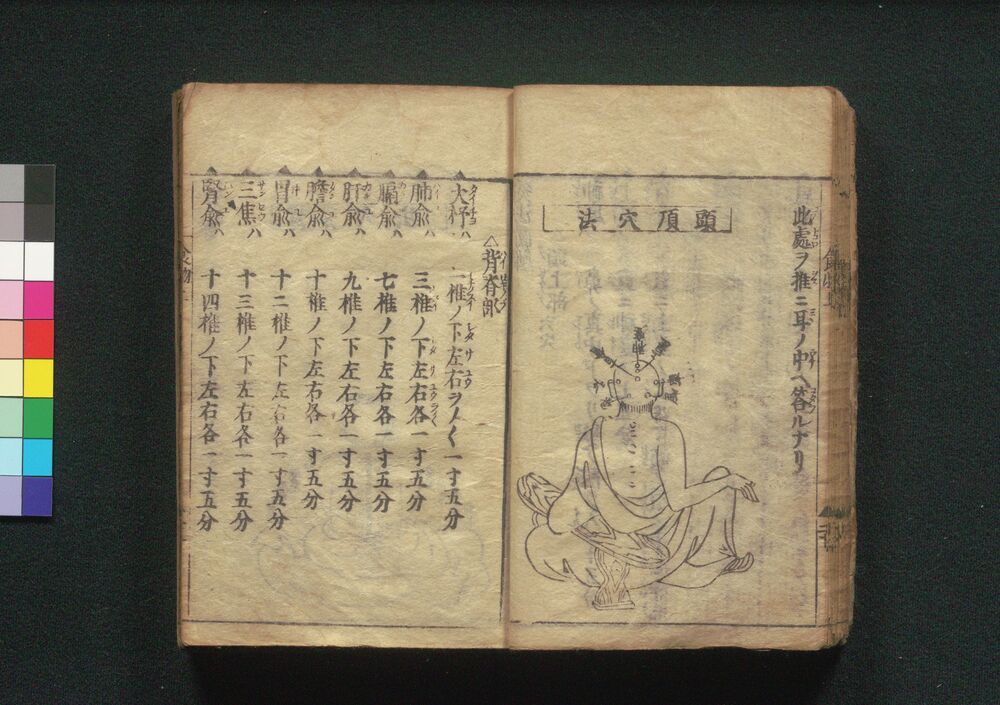 此處ヲ推ニ耳ノ中ヘ答ルナリ
頭頂穴法
△背脊部
大杼ハ 一椎ノ下左右ヲノ〱一寸五分
肺兪ハ 三椎ノ下左右各一寸五分
膈兪ハ 七椎ノ下左右各一寸五分
肝兪ハ 九椎ノ下左右各一寸五分
膽兪ハ 十椎ノ下左右各一寸五分
胃兪ハ 十二椎ノ下左右各一寸五分
三焦ハ 十三椎ノ下左右各一寸五分
腎兪ハ 十四椎ノ下左右各一寸五分